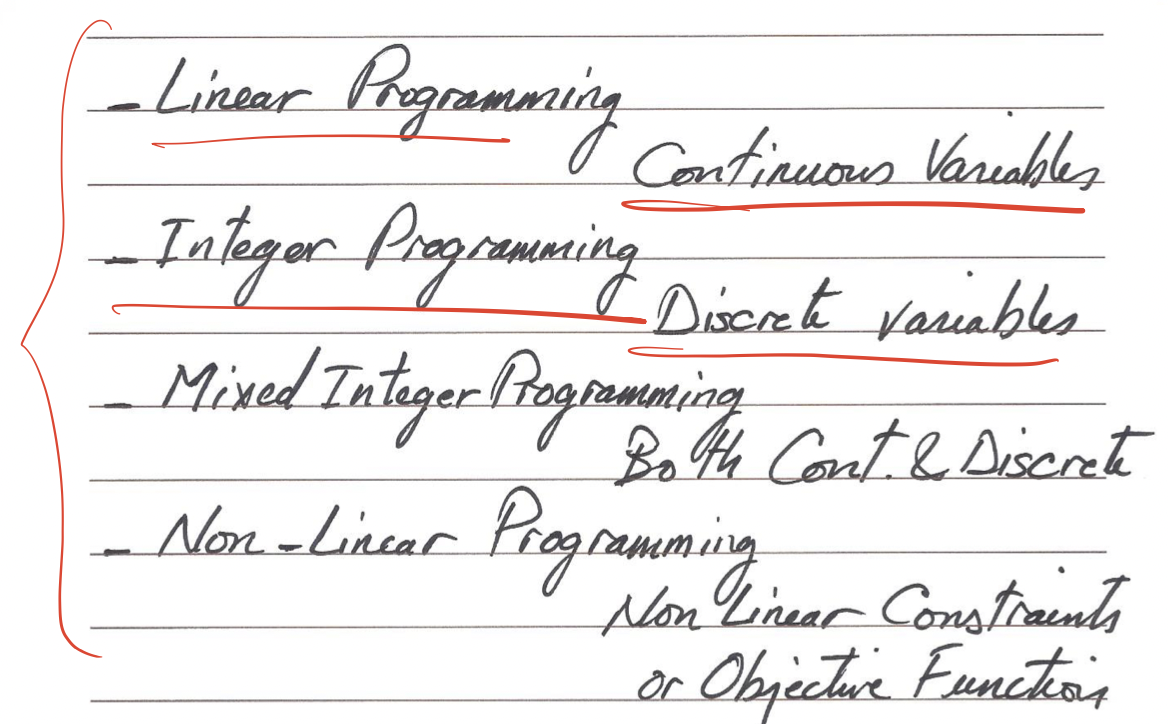 - Linear Programming
Continuous Variables
- Integer Programming
Discrete variables
- Mixed Integer Programming
Both Cont. & Discrete
- Non-Linear Programming
Non Linear Constraints
or Objective Function